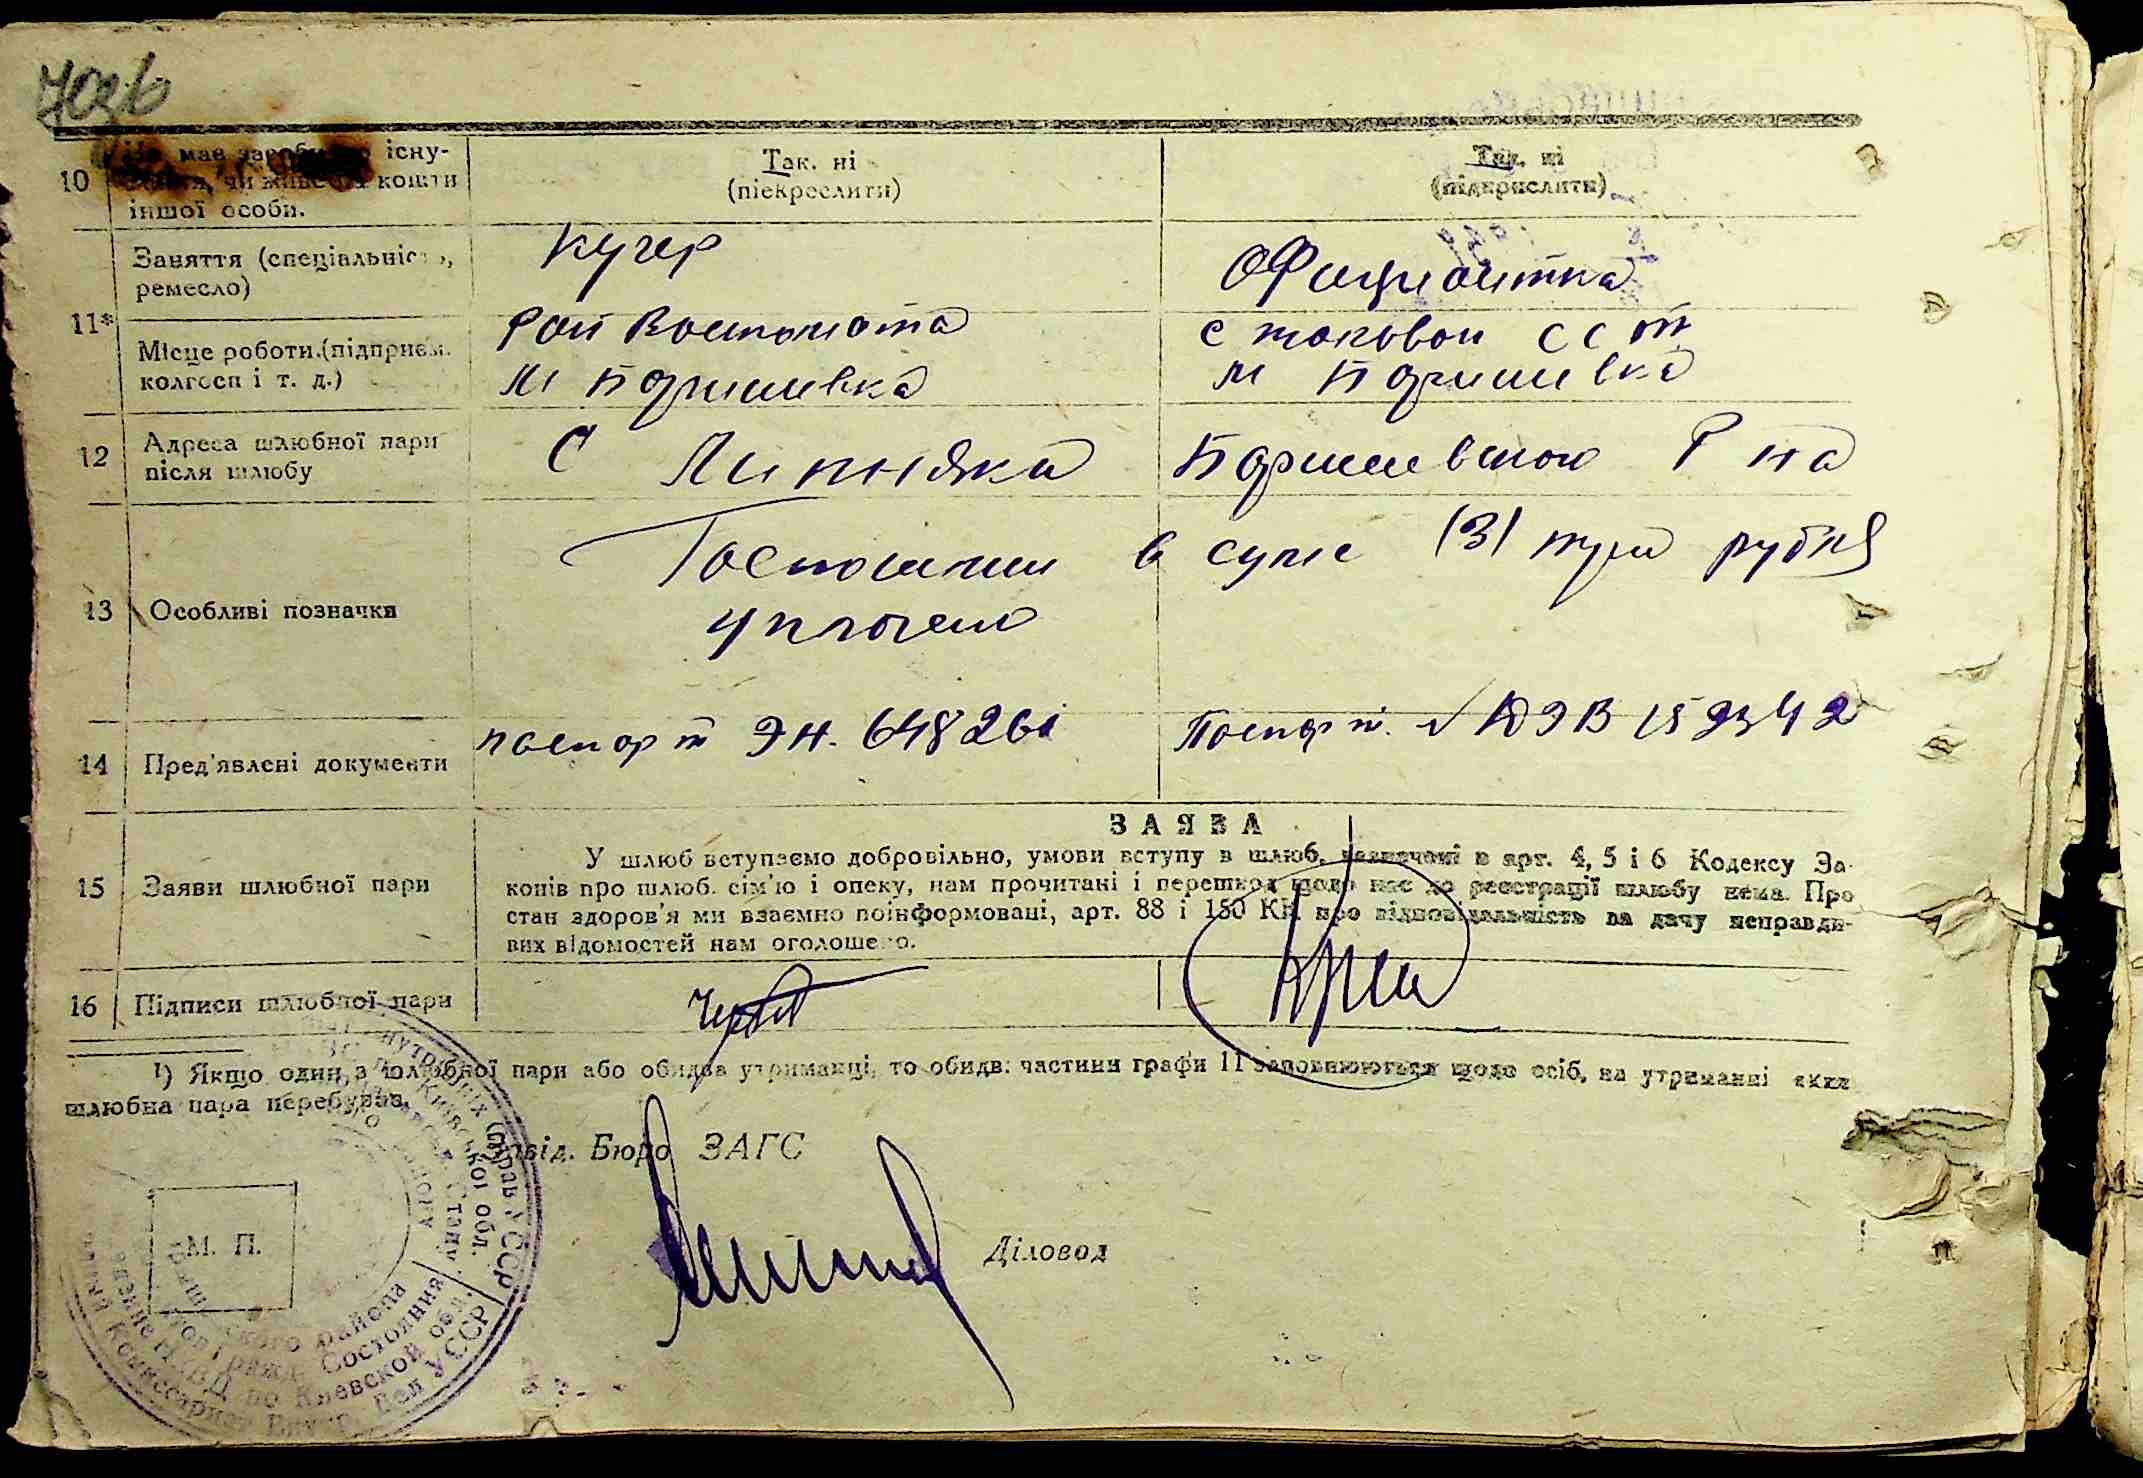 10
існу-
кошти
іншої особи.
Так. ні
(піекреслити)
Так. ні
(підкрислити)
11*
Заняття (спеціальність,
ремесло)
Кучер
Официантка
Місце роботи (підприєм.
колгосп і т. д.)
Рай Воєнкомата
м Баришевка
столовой ССТ
м Баришевка
12
Адреса шлюбної пари
після шлюбу
С Липняки Баришевского Р на
13
Особливі позначки
Госпошлин в суме (3) три рубля
уплочено
14
Пред'явлені документи
паспорт ЭН. 648261
Паспорт. №
15
Заяви шлюбної пари
ЗАЯВА
У шлюб вступаємо добровільно, умови вступу в шлюб, зазначені в арт. 4, 5 і 6 Кодексу За-
конів про шлюб. сім'ю і опеку, нам прочитані і перешкод щодо нас до реєстрації шлюбу нема. Про
стан здоров'я ми взаємно поінформовані, арт. 88 і 150 КК про відповідальність за дачу неправди-
вих відомостей нам оголошено.
16
Підписи шлюбної пари
¹) Якщо один з шлюбної пари або обидва утриманці, то обидві частини графи 11 заповнюються щодо осіб, на утриманні яких
шлюбна пара перебуває.
Завід. Бюро ЗАГС
М. П.
Діловод